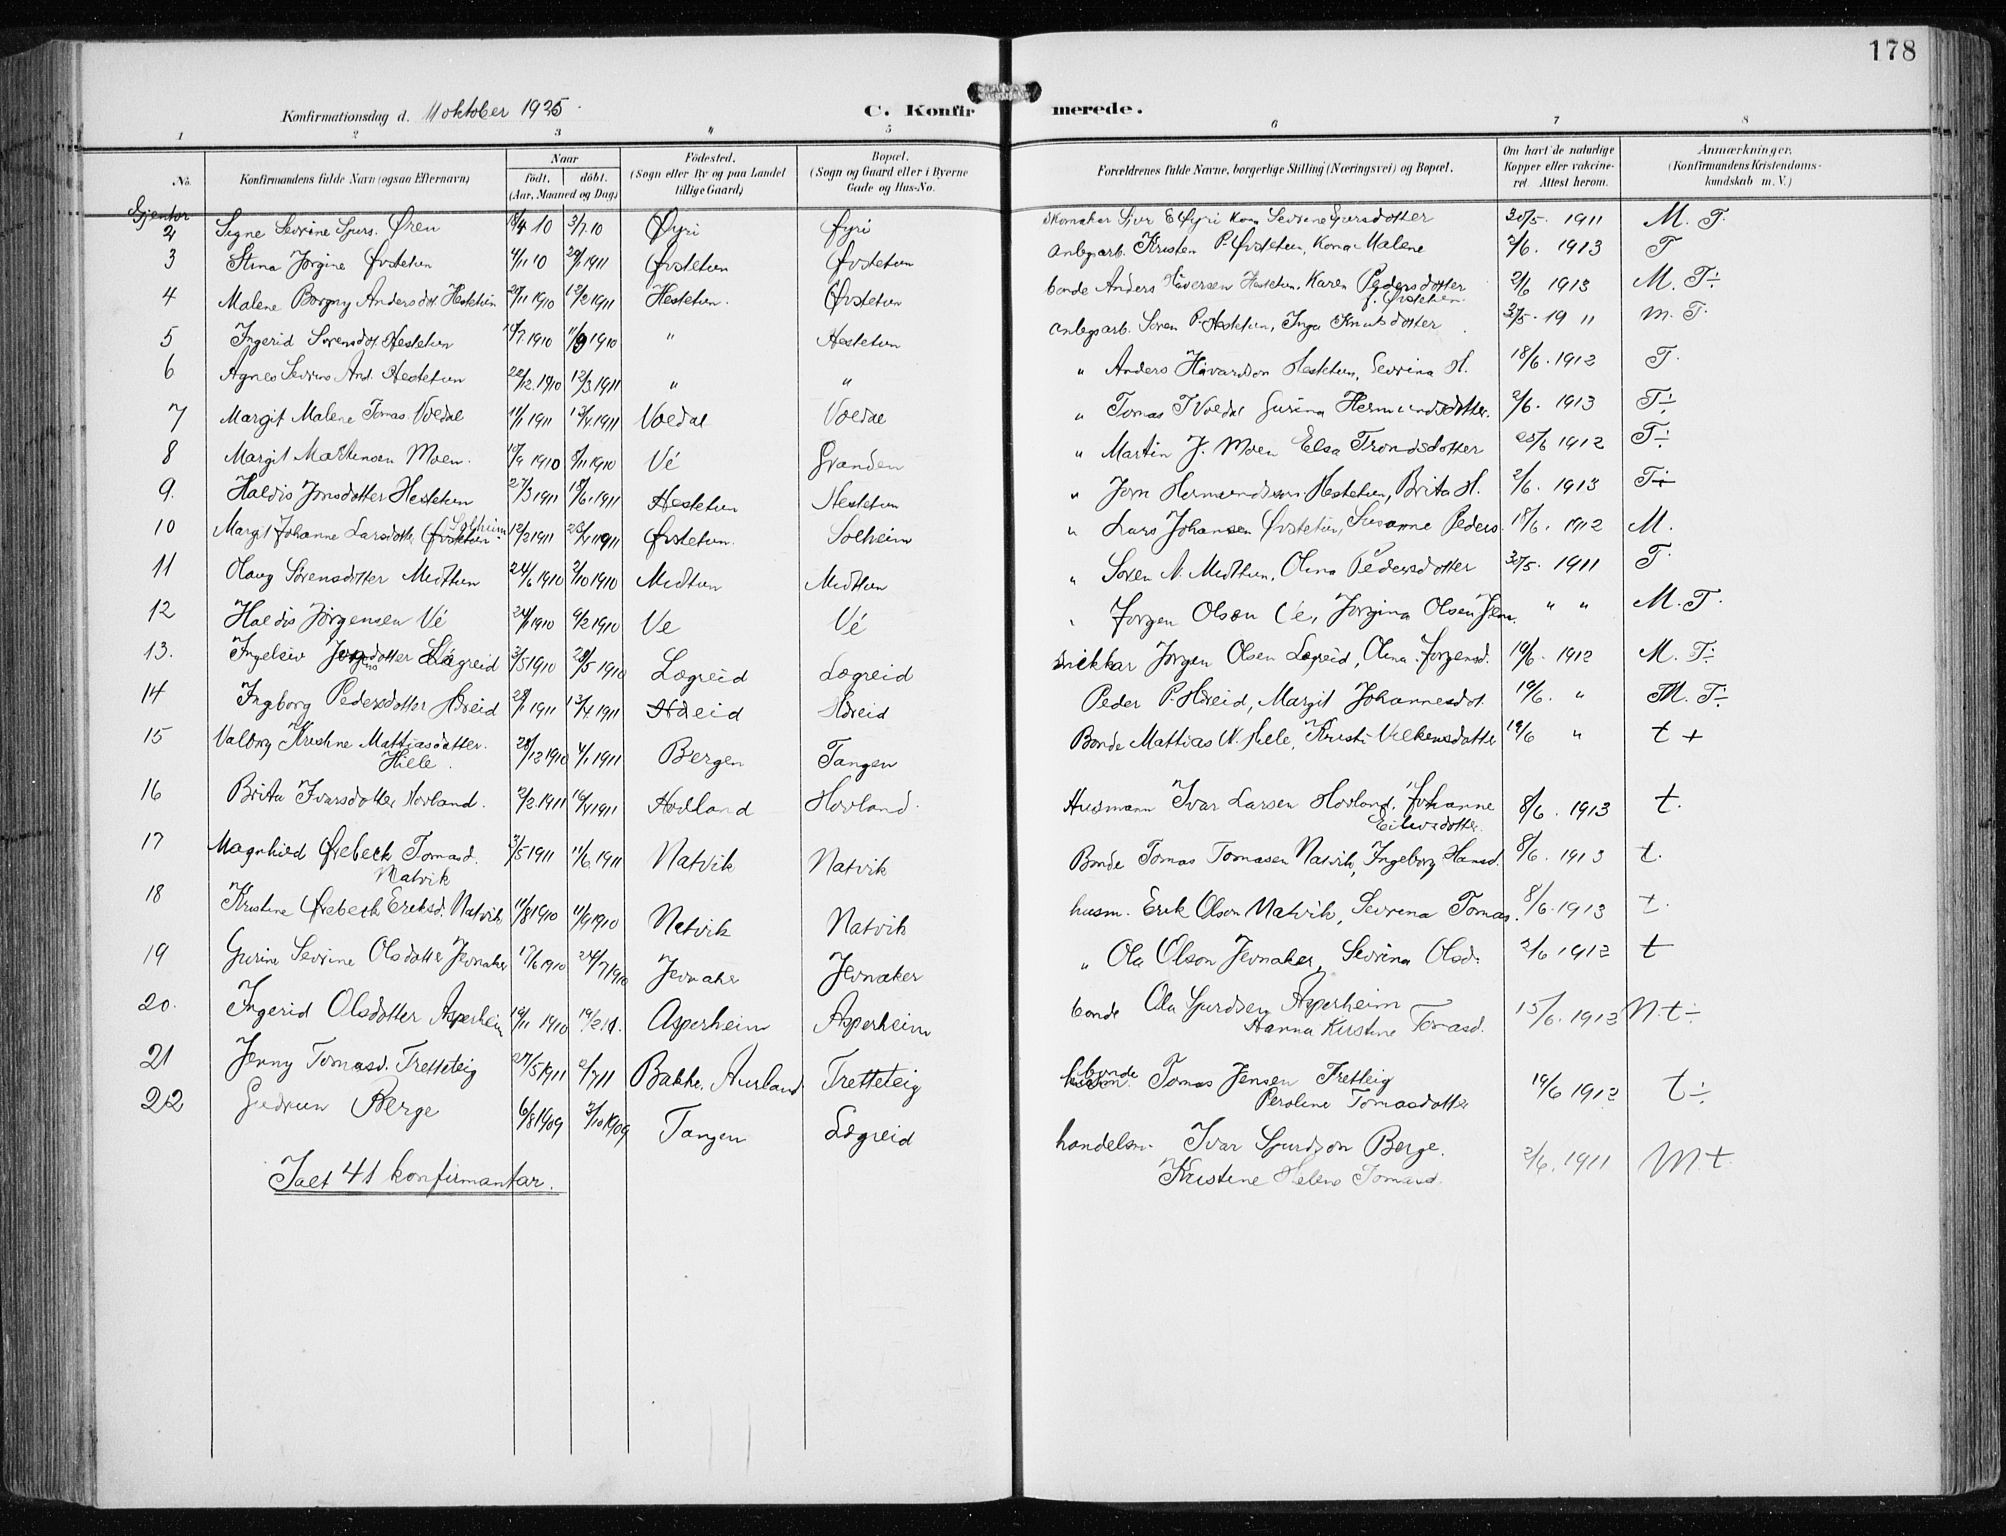 178
Konfirmationsdag d. 11 oktober 1925.
C. Konfirmerede.
1 2 3 4 5 6 7 8
No. Konfirmandens fulde Navn (ogsaa Efternavn) Naar født. døbt. (Aar, Maaned og Dag) Fødested. (Sogn eller By og paa Landet tillige Gaard) Bopæl. (Sogn og Gaard eller i Byerne Gade og Hus-No. Forældrenes fulde Navne, borgerlige Stilling (Næringsvei) og Bopæl. Om havt de naturlige Kopper eller vakcineret. Attest herom. Anmærkninger. (Konfirmandens Kristendomskundskab m. V.)
Gjentor
2 Signe Sevrine Sjurs. Øren 18/4 10 3/7 10 Øyri Øyri Skomaker Sjur E Øyri kona Sevrine Gjursdotter 30/5 1911 M. T.
3 Stina Jørgine Øvstetun 4/11 10 29/1 1911 Øvstetun Øvstetun anlegsarb. Kristen P. Øvstetun, kona Malene 2/6. 1913 T
4 Malene Borgny Andersdot. Hestetun 27/11 1910 12/2 1911 Hestetun. Øvstetun bonde Anders Håversen Hestetun, Karen Pedersdotter f. Øvstetun 2/6 1913 M. T÷
5 Ingerid Sørensdot. Hestetun 10/7 1910 11/9 1910 " Hestetun anlegsarb. Søren P. Hestetun, Inga Knutsdotter 30/5. 1911 m. T.
6 Agnes Sevrine And. Hestetun 22/12 1910 12/3 1911 " " " Anders Håvardson Hestetun, Sevrina H. 18/6. 1912 T.
7 Margit Malene Tomas. Voldal 11/1 1911 13/4 1911 Voldal Voldal " Tomas T Voldal Gurina Hermundsdotter. 2/6. 1913 T÷
8 Margit Martinsen Moen. 10/9 1910 6/11 1910 Vé Granden " Martin J. Moen Elsa Trondsdotter 25/6 1912 T÷
9. Haldis Jonsdotter Hestetun 27/3 1911 18/6 1911 Hestetun Hestetun " Jorn Hermundson Hestetun, Brita H. 2/6. 1913 T÷
10 Margit Johanne Larsdotter Øvstetun Solheim 12/2 1911 23/4 1911 Øvstetun. Solheim " Lars Johansen Øvstetun, Susanne Peders. 18/6. 1912 M.
11 Olaug Sørensdotter Midttun 24/6 1910 2/10 1910 Midttun Midttun " Søren N. Midttun, Olina Pedersdotter 30/5. 1911 T
12 Haldis Jørgensen Vé 24/1 1910 6/2 1910 Ve Vé " Jørgen Olson Ve, Jørgina Olsen Jem. " " M. T.
13. Ingeleiv Jørgensdotter Lægreid 3/5 1910 29/5 1910 Lægreid Lægreid snekkar Jørgen Olsen Lægreid, Olina Jørgensd. 19/6. 1912 M. T÷
14 Ingborg Pedersdotter Hæreid 28/1 1911 13/4 1911 Hæreid Hæreid Peder P. Hæreid, Margit Johannesdot. 19/6. " M. T÷
15 Valborg Kristine Mattiasdatter. Hiele. 28/12 1910 4/1 1911 Bergen Tangen Bonde Mattias N. Hiele, Kristi Velkensdatter 19/6 " t +
16 Brita Ivarsdotter Hovland. 2/2 1911 16/4 1911 Hovland Hovland. Husmann Ivar Larsen Hovland, Johanne Eilivsdotter. 8/6. 1913 t.
17 Magnhild Ørebeck Tomasd. Natvik 3/5 1911 11/6 1911 Natvik Natvik Bonde Tomas Tomasen Natvik, Ingeborg Hansd. 8/6. 1913 t.
18 Kristine Ørebeck Eriksd. Natvik 11/8 1910 11/9 1910 Natvik Natvik husm. Erik Olson Natvik, Sevrena Tomas. 8/6. 1913 t.
19 Gurine Sevrine Olsdotter Jevnaker 17/6 1910 24/7 1910 Jevnaker Jevnaker " Ola Olson Jevnaker, Sevrina Olsd. 2/6 1912 t
20. Ingerid Olsdotter Asperheim 19/11 1910 19/2 11. Asperheim Asperheim bonde Ola Sjurdsen Asperheim Hanna Kristine Tomasd. 15/6. 1912 N. t÷
21 Jenny Tomasd. Tretteteig 27/5 1911 2/7 11 Bakke, Aurland. Tretteteig bonde Tomas Jensen Tretteig Peroline Tomasdotter 19/6 1912 t÷
22 Gudrun Berge 6/8 1909 3/10 1909 Tangen Lægreid handelsm. Ivar Sjurdson Berge. Kristine Helene Tomasd. 2/6. 1911 M. t.
Ialt 41 konfirmantar.